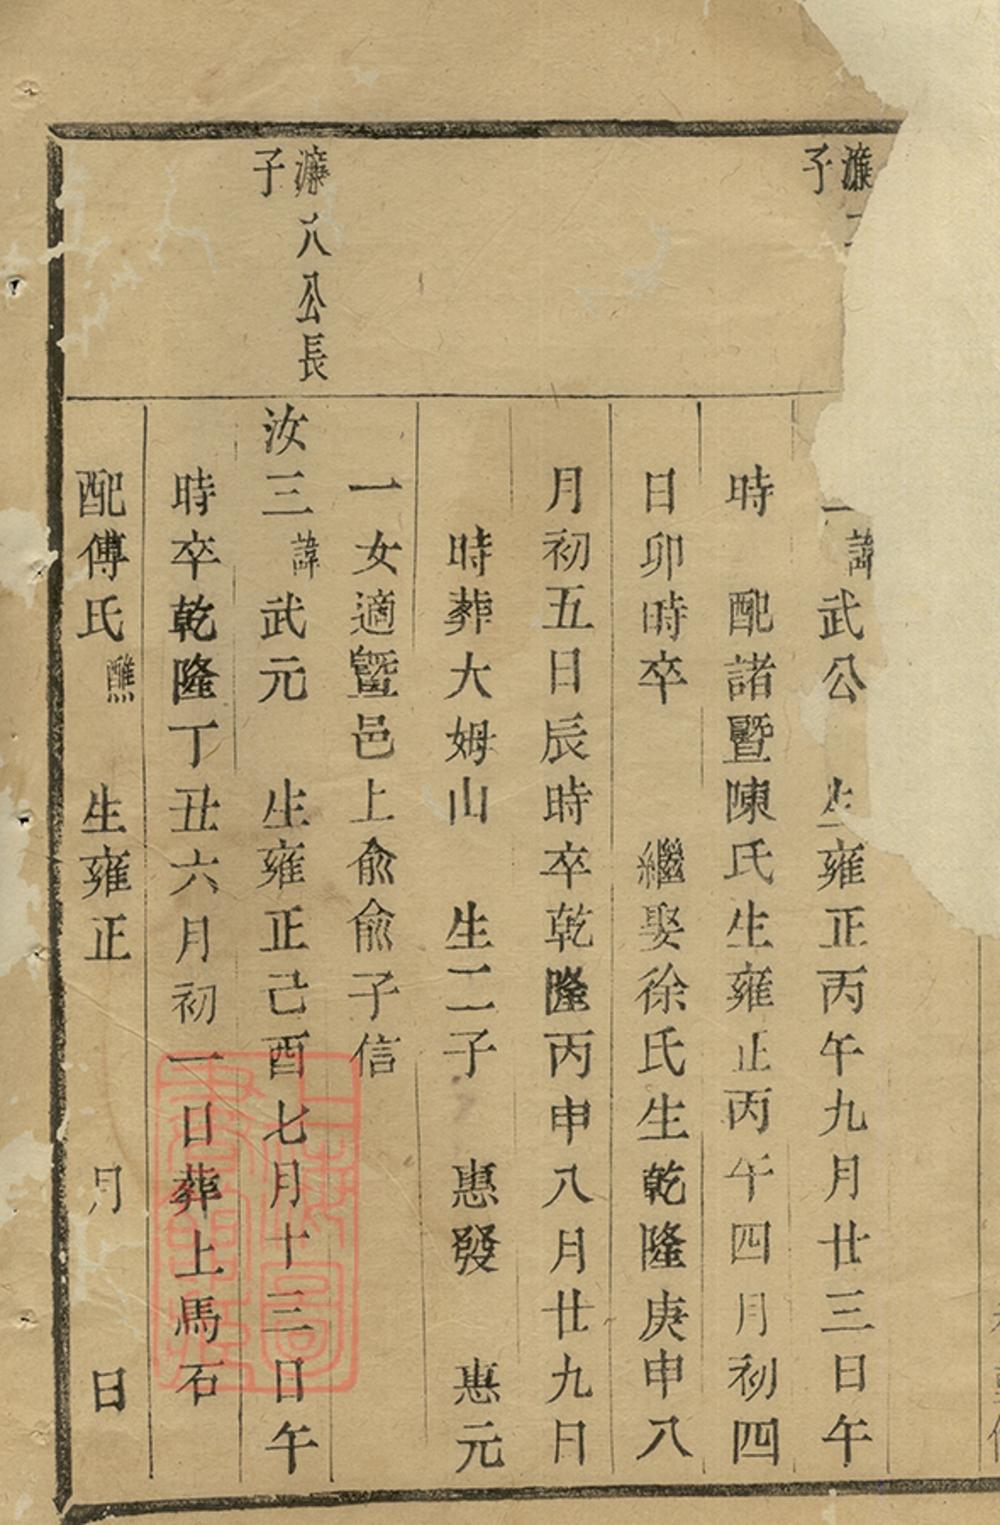 濂
子
諱武公 生雍正丙午九月廿三日午
時 配諸暨陳氏生雍正丙午四月初四
日卯時卒 繼娶徐氏生乾隆庚申八
月初五日辰時卒乾隆丙申八月廿九日
時葬大姆山 生二子 惠發 惠元
一女適暨邑上俞俞子信
濂八公長
子
汝三諱武元 生雍正己酉七月十三日午
時卒乾隆丁丑六月初一日葬上馬石
配傅氏醮 生雍正 月 日